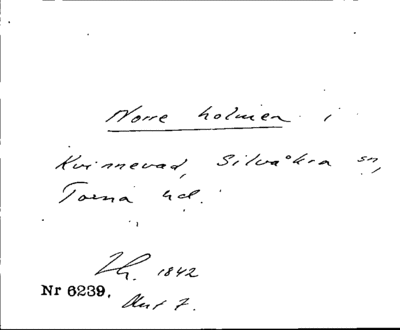 Norre holmen i
Kvinnevad, Silvåkra sn,
Torna hd.
Lh. 1842
Nr 6239. Akt 7.